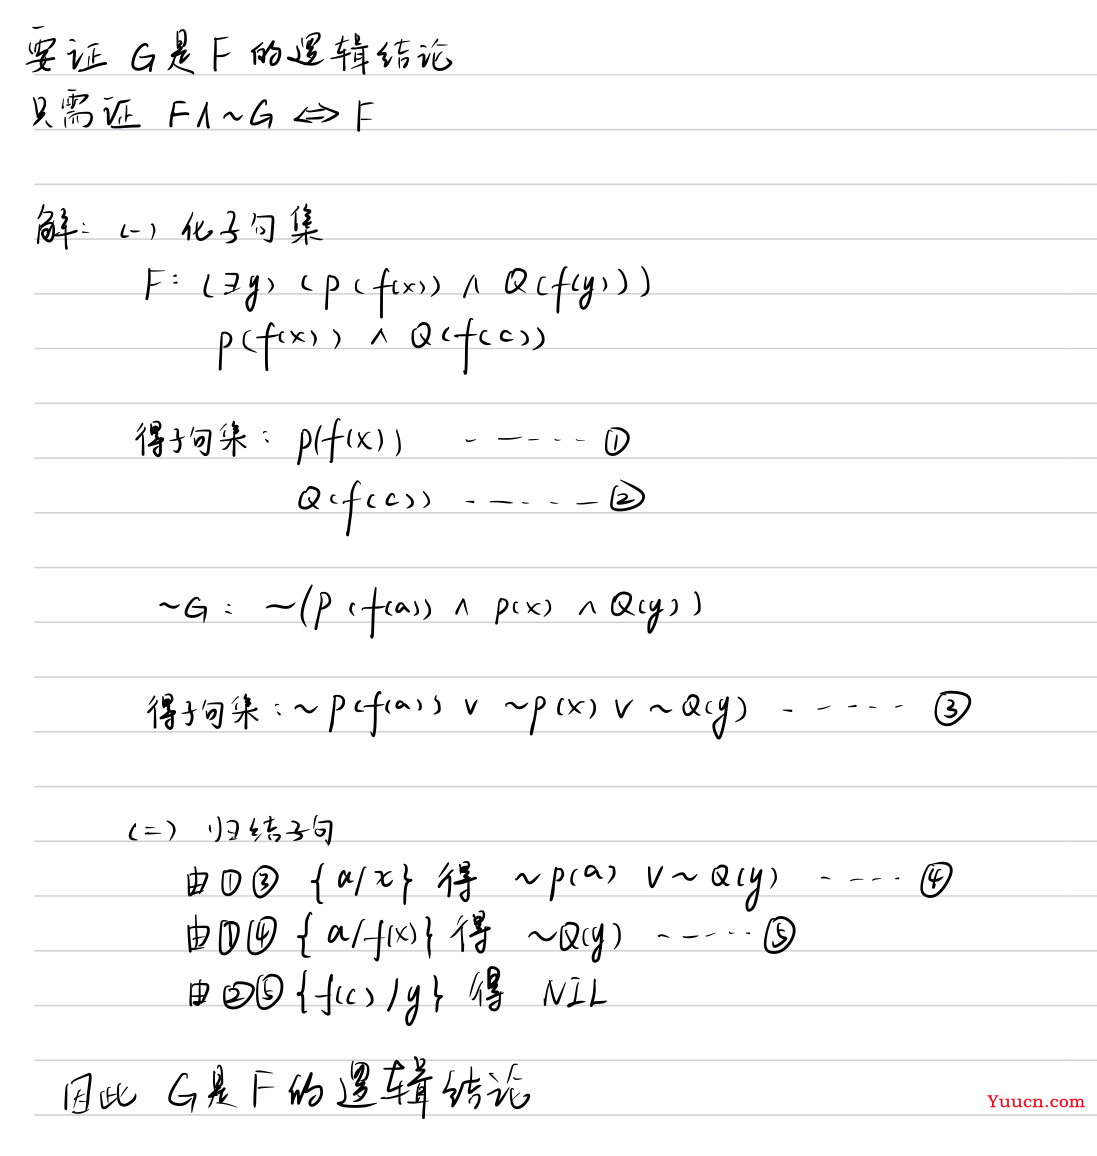 要证 G是F的逻辑结论
只需证 F∧~G ⇔ F
解: (一) 化子句集
F: (∃y) (P(f(x)) ∧ Q(f(y)))
P(f(x)) ∧ Q(f(c))
得子句集: P(f(x)) ------ ①
Q(f(c)) ------ ②
~G: ~(P(f(a)) ∧ P(x) ∧ Q(y))
得子句集: ~P(f(a)) ∨ ~P(x) ∨ ~Q(y) ------ ③
(二) 归结子句
由①③ {a/x} 得 ~P(a) ∨ ~Q(y) ---- ④
由①④ {a/f(x)} 得 ~Q(y) ------ ⑤
由②⑤ {f(c)/y} 得 NIL
因此 G是F的逻辑结论
Yuucn.com